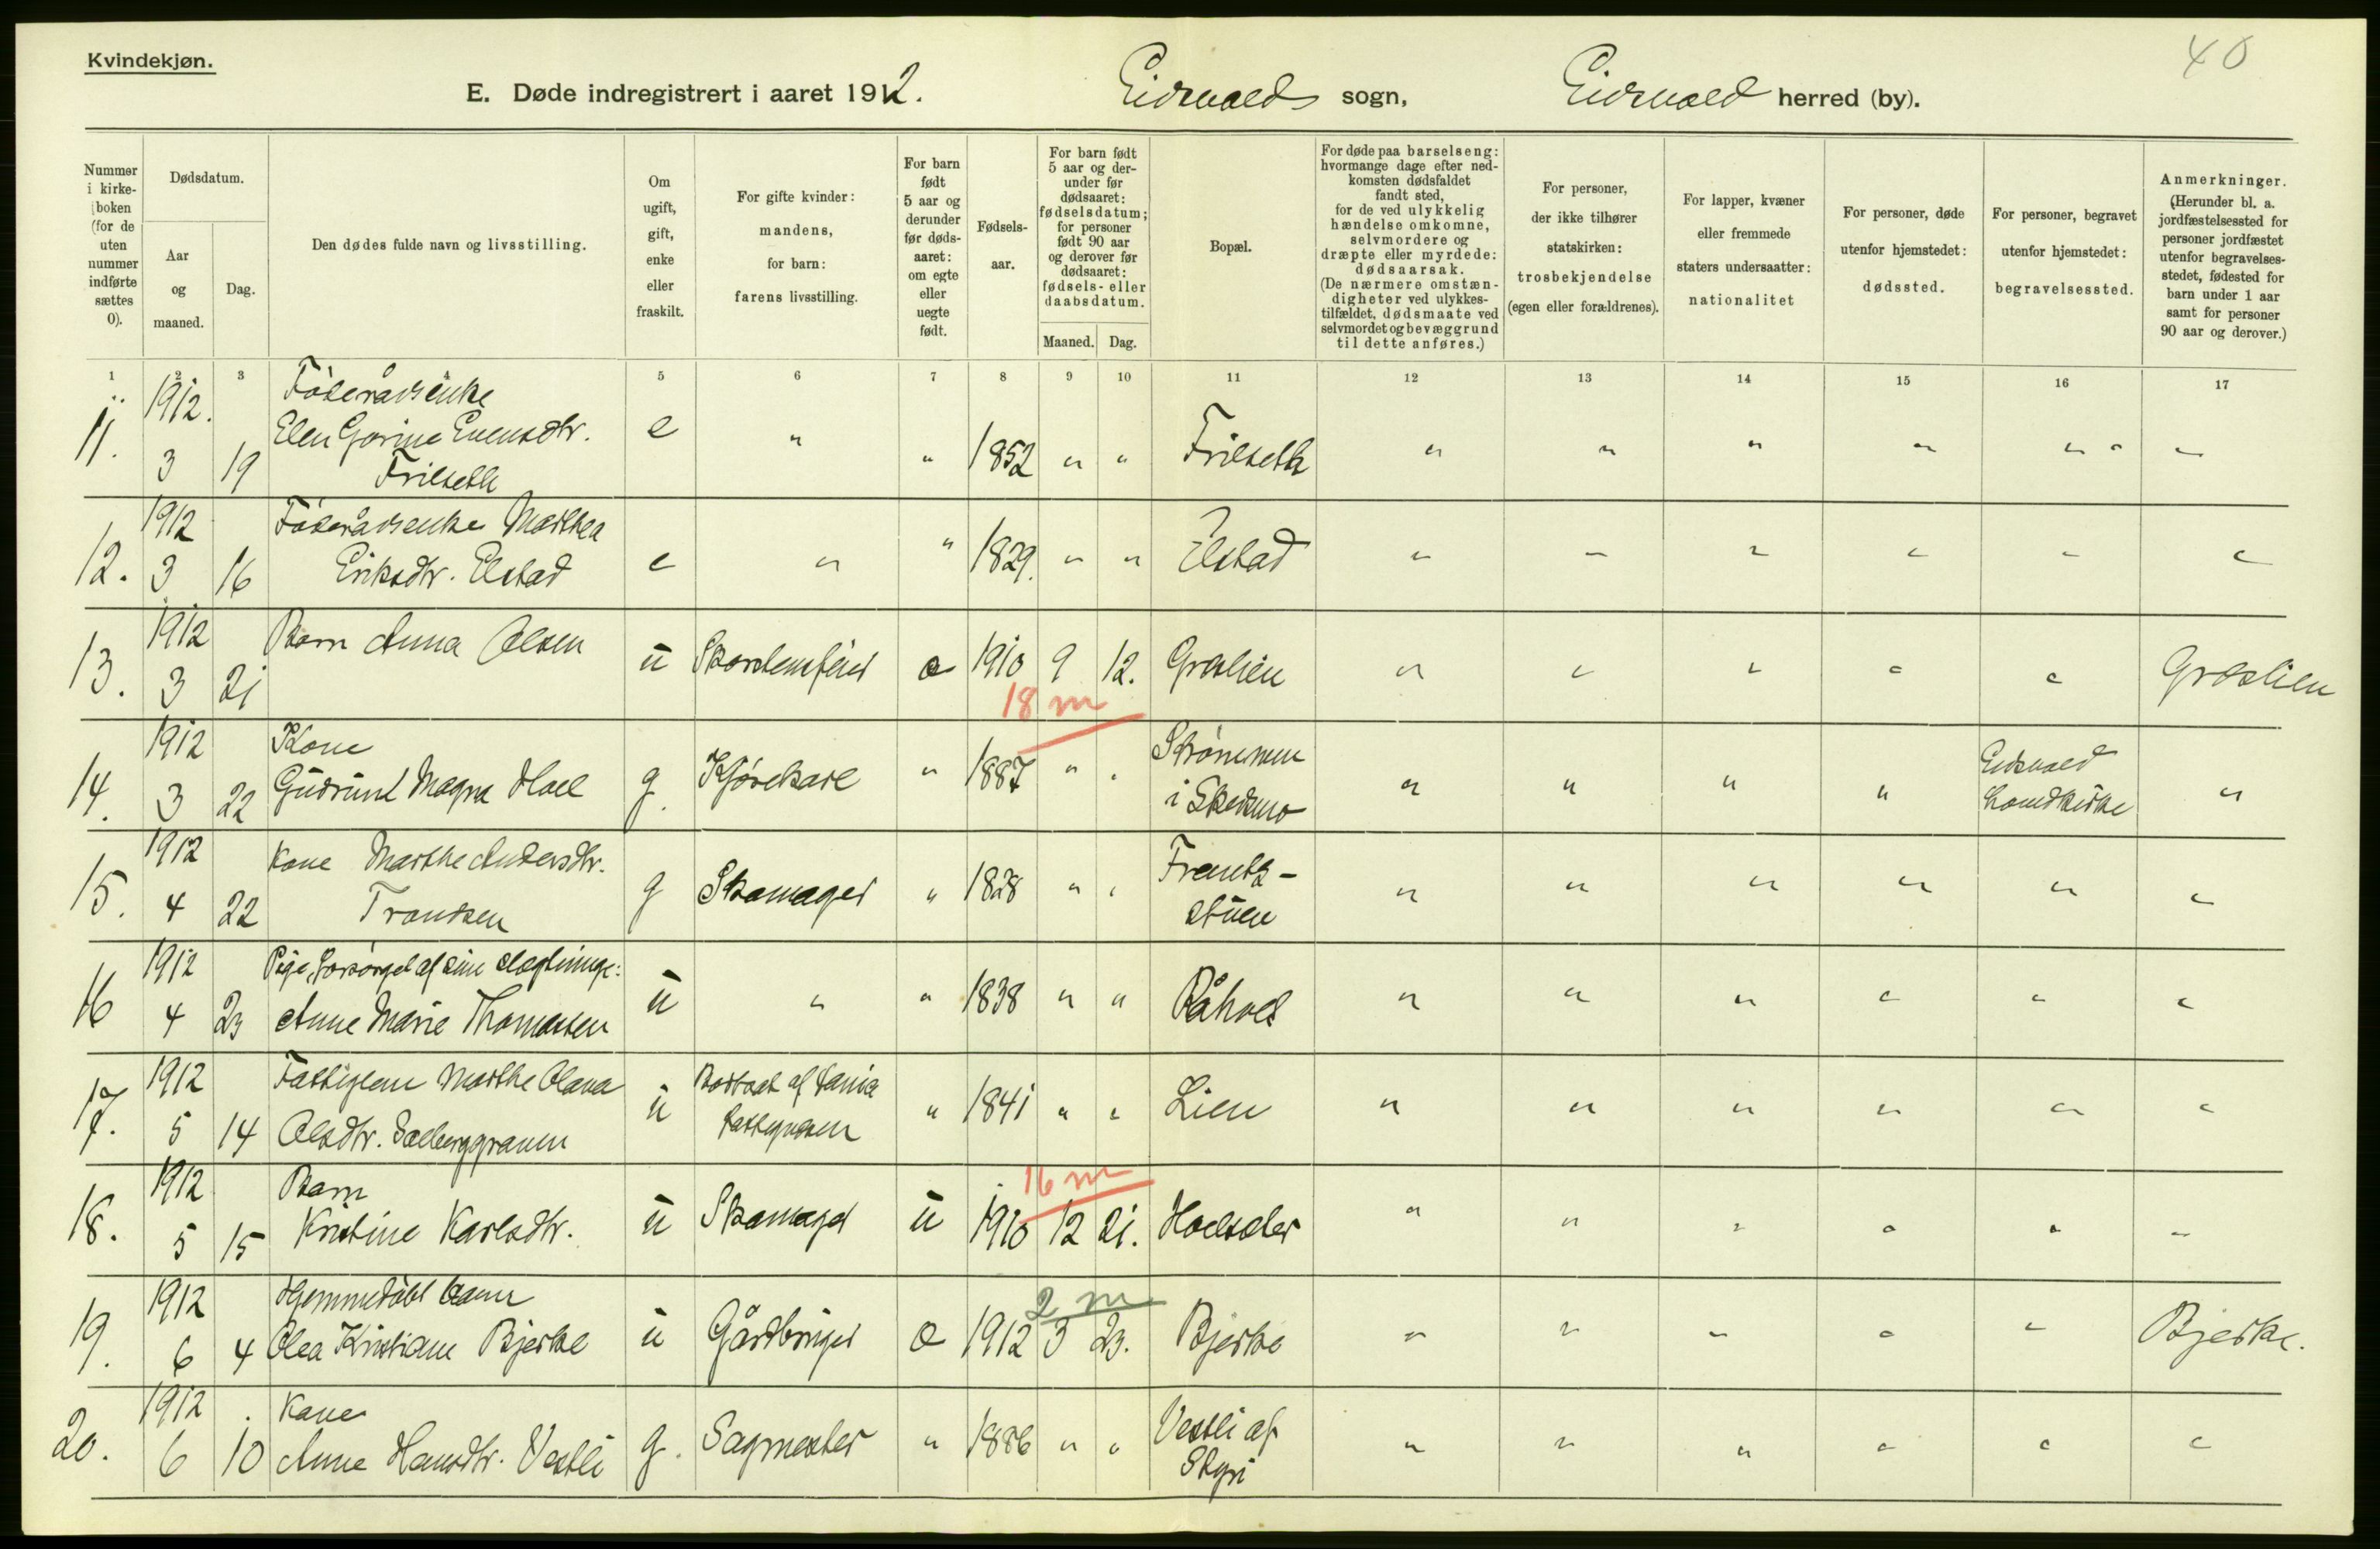 Kvindekjøn.
40
E. Døde indregistrert i aaret 1912. Eidsvold sogn, Eidsvold herred (by).
Nummer i kirke-boken (for de uten nummer indførte sættes 0).
Dødsdatum.
Aar og maaned.
Dag.
Den dødes fulde navn og livsstilling.
Om ugift, gift, enke eller fraskilt.
For gifte kvinder: mandens, for barn: farens livsstilling.
For barn født 5 aar og derunder før døds-aaret: om egte eller uegte født.
Fødsels-aar.
For barn født 5 aar og der-under før dødsaaret: fødselsdatum; for personer født 90 aar og derover før dødsaaret: fødsels- eller daabsdatum.
Maaned. Dag.
Bopæl.
For døde paa barselseng: hvormange dage efter ned-komsten dødsfaldet fandt sted, for de ved ulykkelig hændelse omkomne, selvmordere og dræpte eller myrdede: dødsaarsak. (De nærmere omstæn-digheter ved ulykkes-tilfældet, dødsmaate ved selvmordet og bevæggrund til dette anføres.)
For personer, der ikke tilhører statskirken: trosbekjendelse (egen eller forældrenes).
For lapper, kvæner eller fremmede staters undersaatter: nationalitet
For personer, døde utenfor hjemstedet: dødssted.
For personer, begravet utenfor hjemstedet: begravelsessted.
Anmerkninger. (Herunder bl. a. jordfæstelsessted for personer jordfæstet utenfor begravelses-stedet, fødested for barn under 1 aar samt for personer 90 aar og derover.)
1 2 3 4 5 6 7 8 9 10 11 12 13 14 15 16 17
11. 1912. 3 19 Føderådsenke Elen Gorine Evensdtr. Frilseth e " " 1852 " " Frilseth " " " " " "
12. 1912 3 16 Føderådsenke Marthea Eriksdtr. Elstad e " " 1829. " " Elstad " " " " " "
13. 1912 3 21 Barn Anna Olsen u Skorstensfeier e 1910 9 12. Græslien " " " " " Græslien
18 m
14. 1912 3 22 Kone Gudrund Magna Hoel g. Kjørekarl " 1887 " " Strømmen i Skedsmo " " " " Eidsvold hovedkirke "
15. 1912 4 22 Kone Marthe Andersdtr. Trondsen g Skomager " 1828 " " Frantz-stuen " " " " " "
16 1912 4 23 Pige, forsørget af sine slægtninge: Anne Marie Thomassen u " " 1838 " " Råhol " " " " " "
17. 1912 5 14 Fattiglem Marthe Olava Olsdtr. u " 1841 " " Lien " " " " " "
18. 1912 5 15 Barn Kristine Karlsdtr. u Skomager u 1910 12 21. " " " " " "
16 m
19. 1912 6 4 Hjemmedøbt barn Olea Kristiane Bjerke u Gårdbruger e 1912 3 23. Bjerke " " " " " Bjerke.
2 m
20. 1912 6 10 Kone Anne Hansdtr. Vestli g. Sagmester " 1886 " " Vestli af Styri " " " " " "